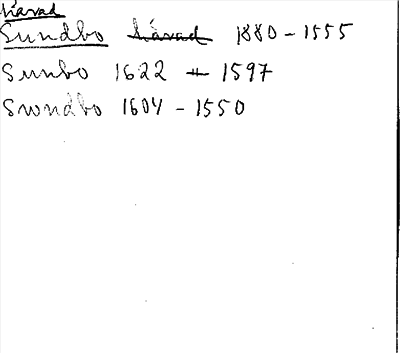 härad
Sundbo härad 1880-1555
Sunbo 1622 - 1597
Swondbo 1604 - 1550